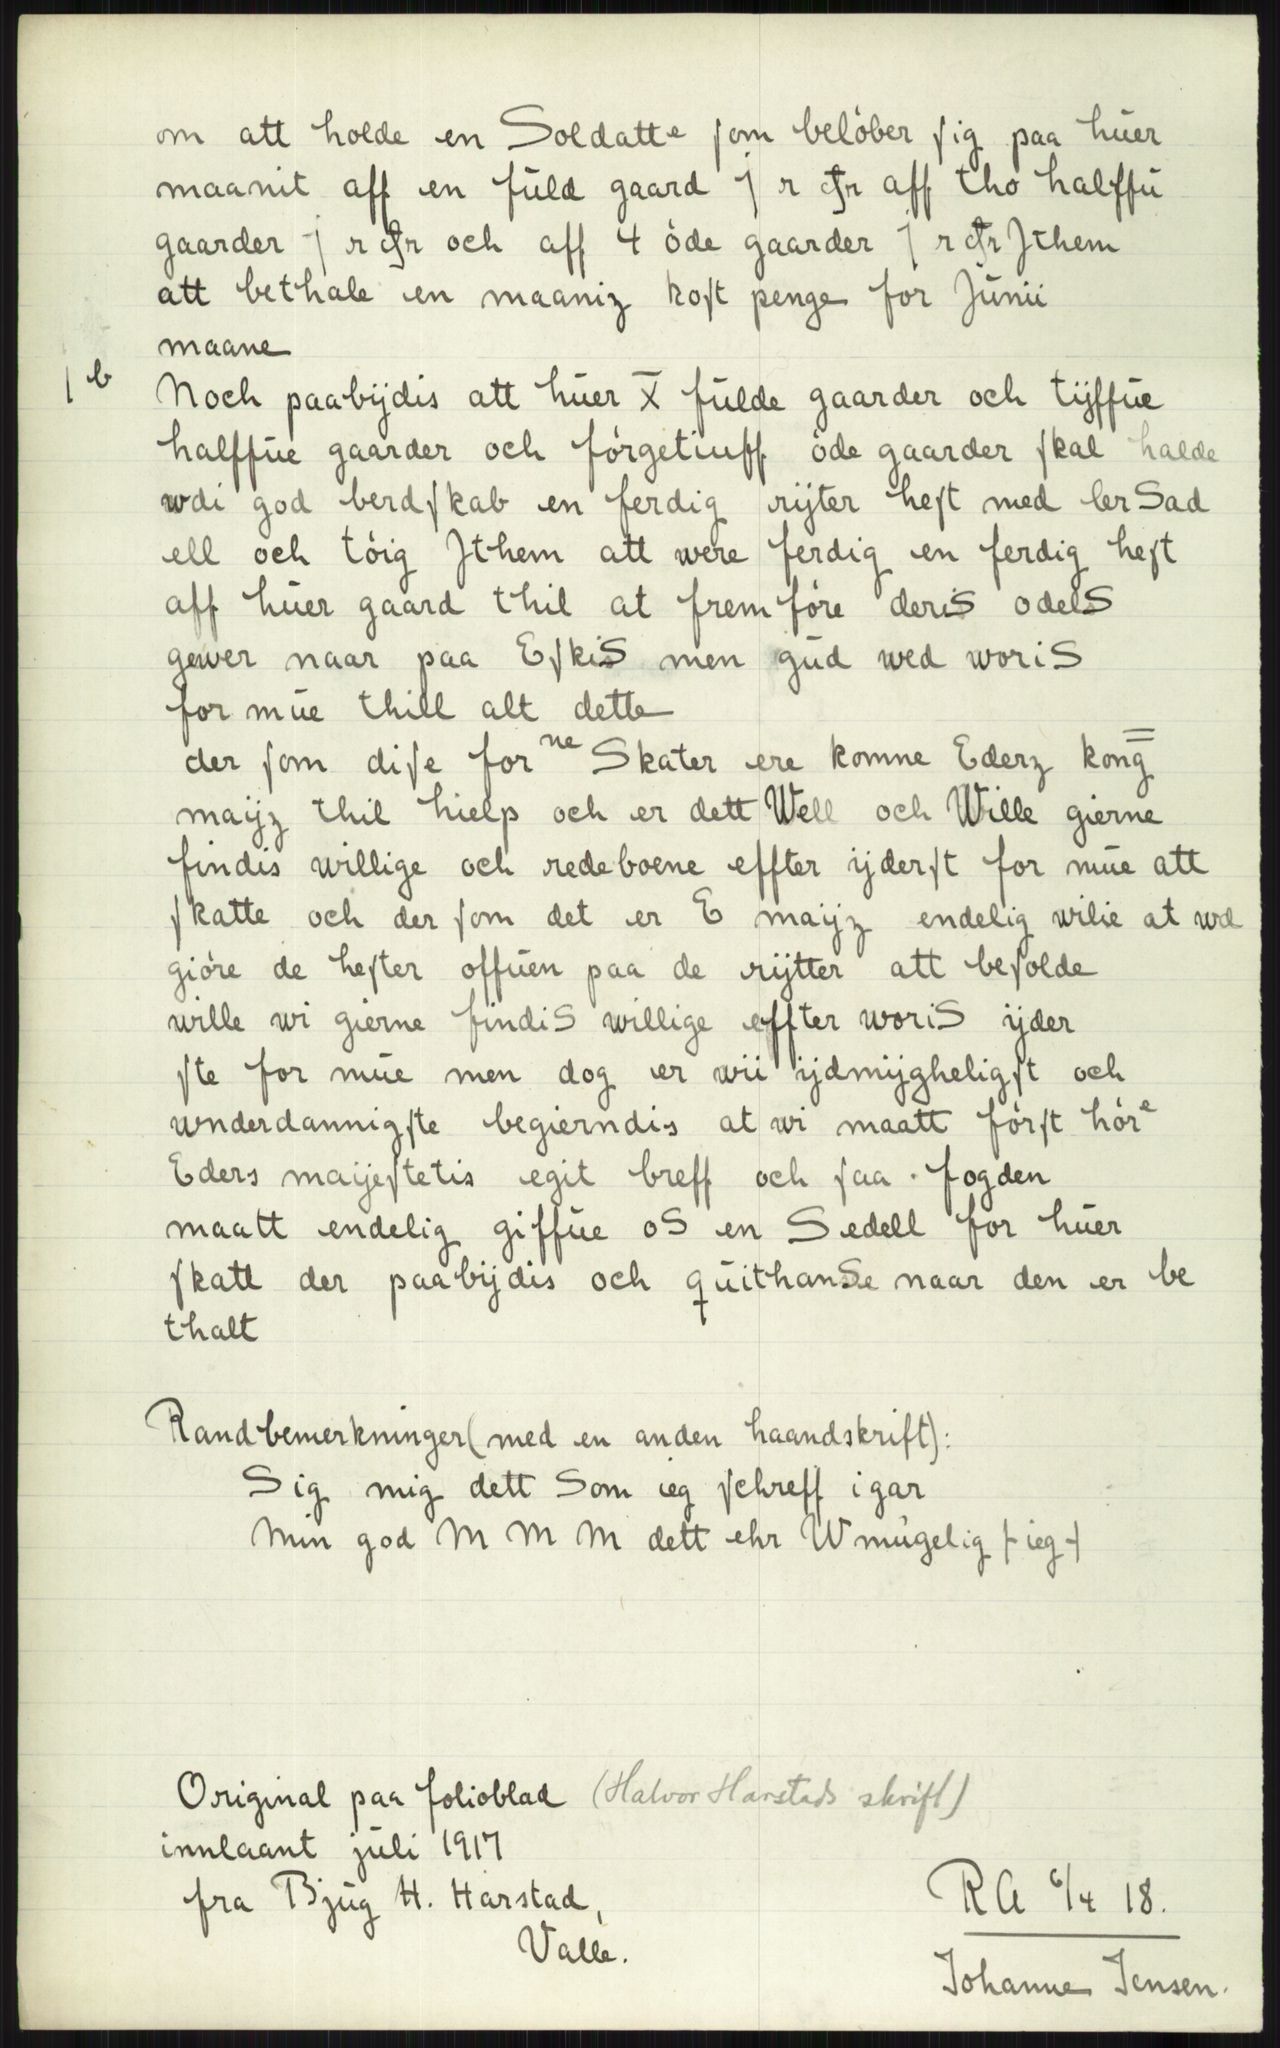 om att holde en Soldatte som belöber sig paa huer
maanit aff en fuld gaard j r dlr aff tho halffu
gaarder j r dlr och aff 4 öde gaarder j r dlr Jthem
att bethale en maaniz kost penge for Junii
maane
1b Noch paabijdis att huer X fulde gaarder och tijffue
halffue gaarder och förgetiuff öde gaarder skal halde
wdi god berdskab en ferdig rijter hest med ler Sad
ell och töig Jthem att were ferdig en ferdig hest
aff huer gaard thil at frem före deris odelS
gewer naar paa EskiS men gud wed woriS
for mue thill alt dette
der som dise for ne Skater ere komne Ederz kong
maijz thil hielp och er dett Well och Wille gierne
findis willige och redeboene effter ijderst for mue att
skatte och der som det er E maijz endelig wilie at wd
giöre de hester offuen paa de rijtter att besolde
wille wi gierne findiS willige effter woriS ijder
ste for mue men dog er wii ijdmijgheligst och
wnderdannigste begierndis at wi maatt först höre
Eders maijestetis egit breff och saa fogden
maatt endelig giffue oS en Sedell for huer
skatt der paabijdis och quithanSe naar den er be
thalt
Randbemerkninger (med en anden haandskrift):
Sig mig dett Som ieg schreff igar
Min god M M M dett ehr Wmugelig [-ieg-]
Original paa folioblad (Halvor Harstads skrift)
innlaant juli 1917
fra Bjug H. Harstad,
Valle.
RA 6/4 18.
Johanne Jensen.